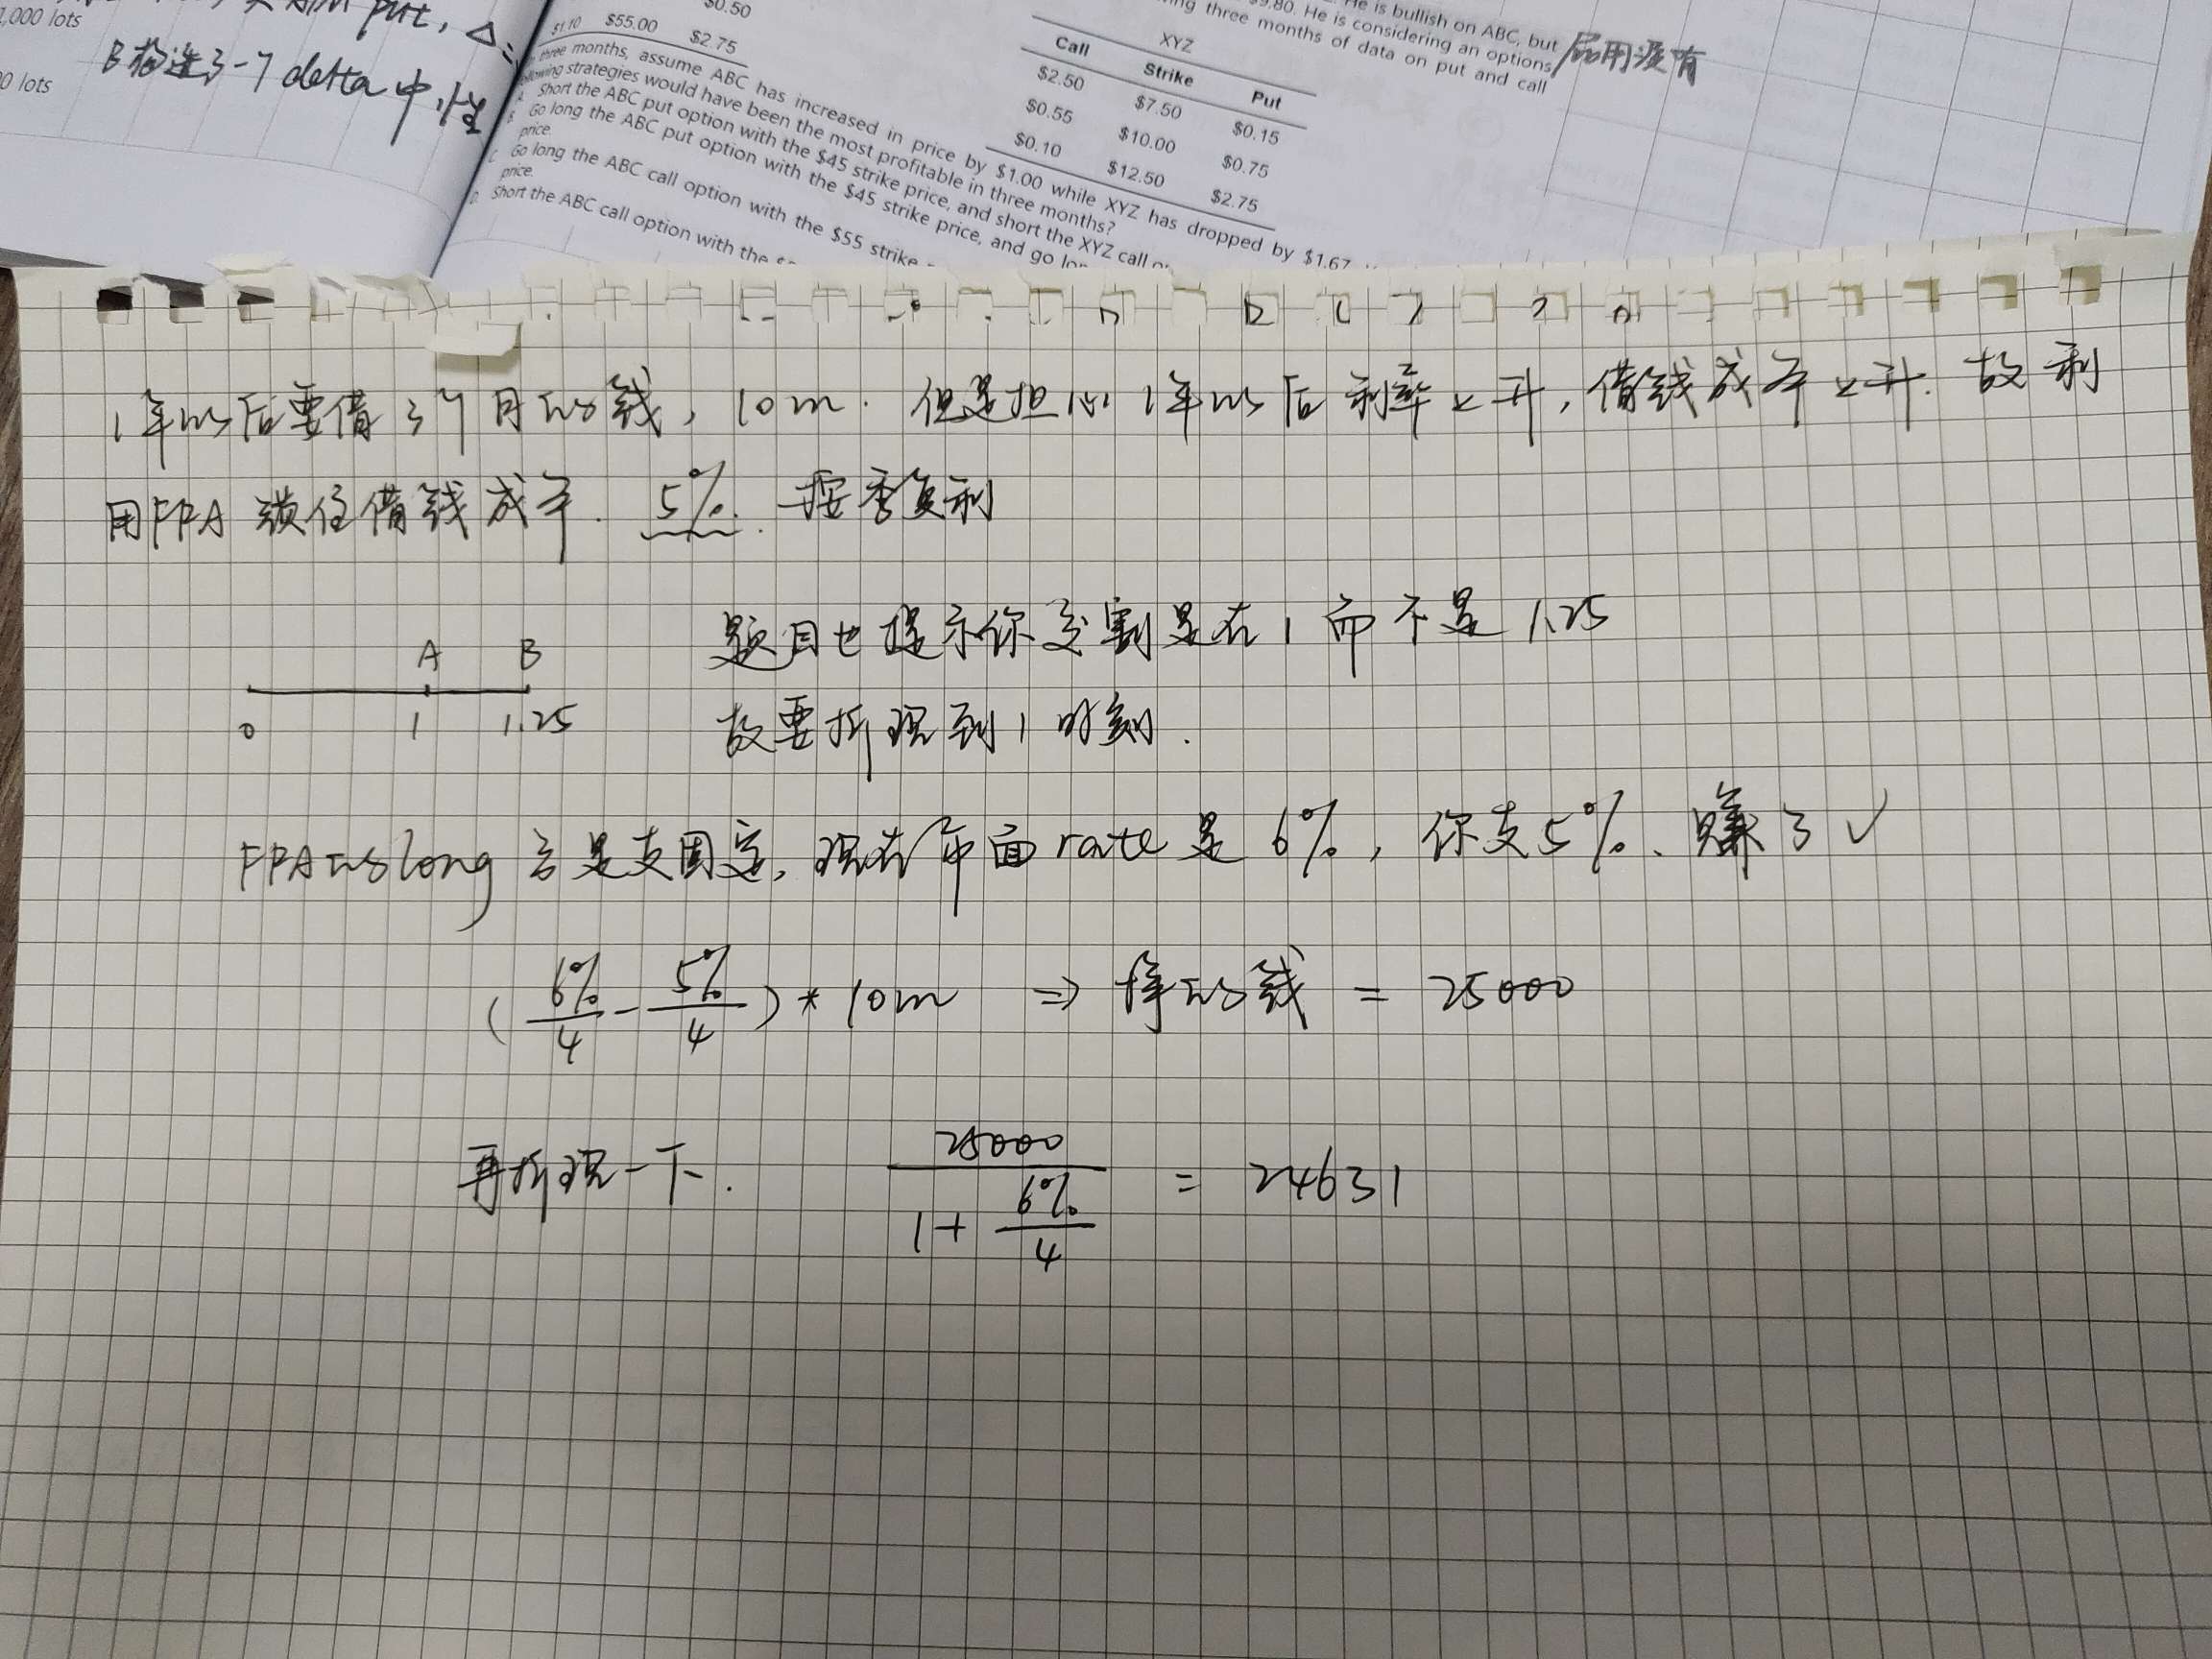 1,000 lots
0 lots
B 构造了一个 delta 中性
$0.50
$1.10 $55.00 $2.75
three months, assume ABC has increased in price by $1.00 while XYZ has dropped by $1.67
following strategies would have been the most profitable in three months?
Short the ABC put option with the $45 strike price, and short the XYZ call
Go long the ABC put option with the $45 strike price, and go
price.
C. Go long the ABC call option with the $55 strike
price.
D. Short the ABC call option with the
He is bullish on ABC, but
$9.80. He is considering an options
three months of data on put and call
XYZ
Call Strike Put
$2.50 $7.50 $0.15
$0.55 $10.00 $0.75
$0.10 $12.50 $2.75
1年以后要借3个月的钱, 10m. 但是担心1年以后利率上升, 借钱成本上升. 故利
用FRA 锁住借钱成本. 5%. 按季复利
题目也提示你交割是在 1 而不是 1.25
A B
0 1 1.25
故要折现到 1 时刻.
FRA的long 方是支固定, 现在市面 rate 是 6%, 你支5%. 赚了 ✓
(6%/4 - 5%/4) * 10m ⇒ 挣的钱 = 25000
再折现一下. 25000/(1 + 6%/4) = 24631